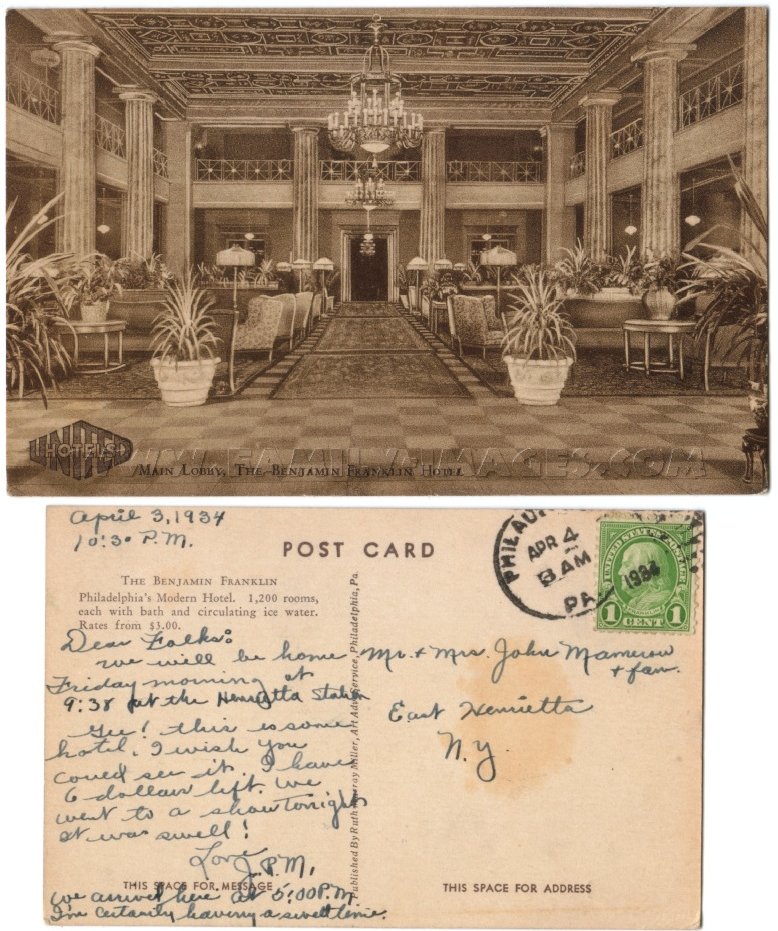 HOTELS
WWW.FAMILY-IMAGES.COM
MAIN LOBBY, THE BENJAMIN FRANKLIN HOTEL
April 3, 1934
10:30 P.M.
POST CARD
THE BENJAMIN FRANKLIN
Philadelphia's Modern Hotel. 1,200 rooms,
each with bath and circulating ice water.
Rates from $3.00.
Dear Folks:
we will be home
Friday morning at
9:38 at the Henrietta Station
Gee! this is some
hotel. I wish you
could see it. I have
6 dollars left. We
went to a show tonight
it was swell!
Love
J.P.M.
THIS SPACE FOR MESSAGE
we arrived here at 5:00 P.M.
I'm certainly having a swell time.
Published By Ruth Murray Miller, Art Adv. Service, Philadelphia, Pa.
APR 4
3 AM
1934
PA
UNITED STATES POSTAGE
FRANKLIN
1 CENT 1
Mr. & Mrs. John Mamerow
& fam.
East Henrietta
N.Y
THIS SPACE FOR ADDRESS